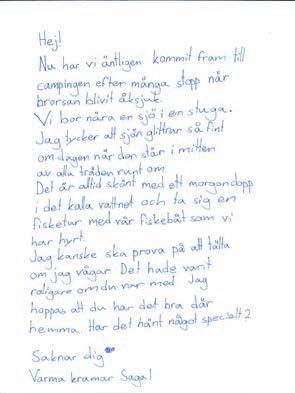 Hej!
Nu har vi äntligen kommit fram till
campingen efter många stopp når
brorsan blivit åksjuk.
Vi bor nära en sjö i en stuga.
Jag tycker att sjön glittrar så fint
om dagen når den står i mitten
av alla träden runt om.
Det är altid skönt med ett morgondopp
i det kala vattnet och ta sig en
fisketur med vår fiskebåt som vi
har hyrt.
Jag kanske ska prova på att tälta
om jag vågar. Det hade varit
roligare om du var med Jag
hoppas att du har det bra där
hemma. Har det hänt något speciellt?
Saknar dig
Varma kramar Saga!